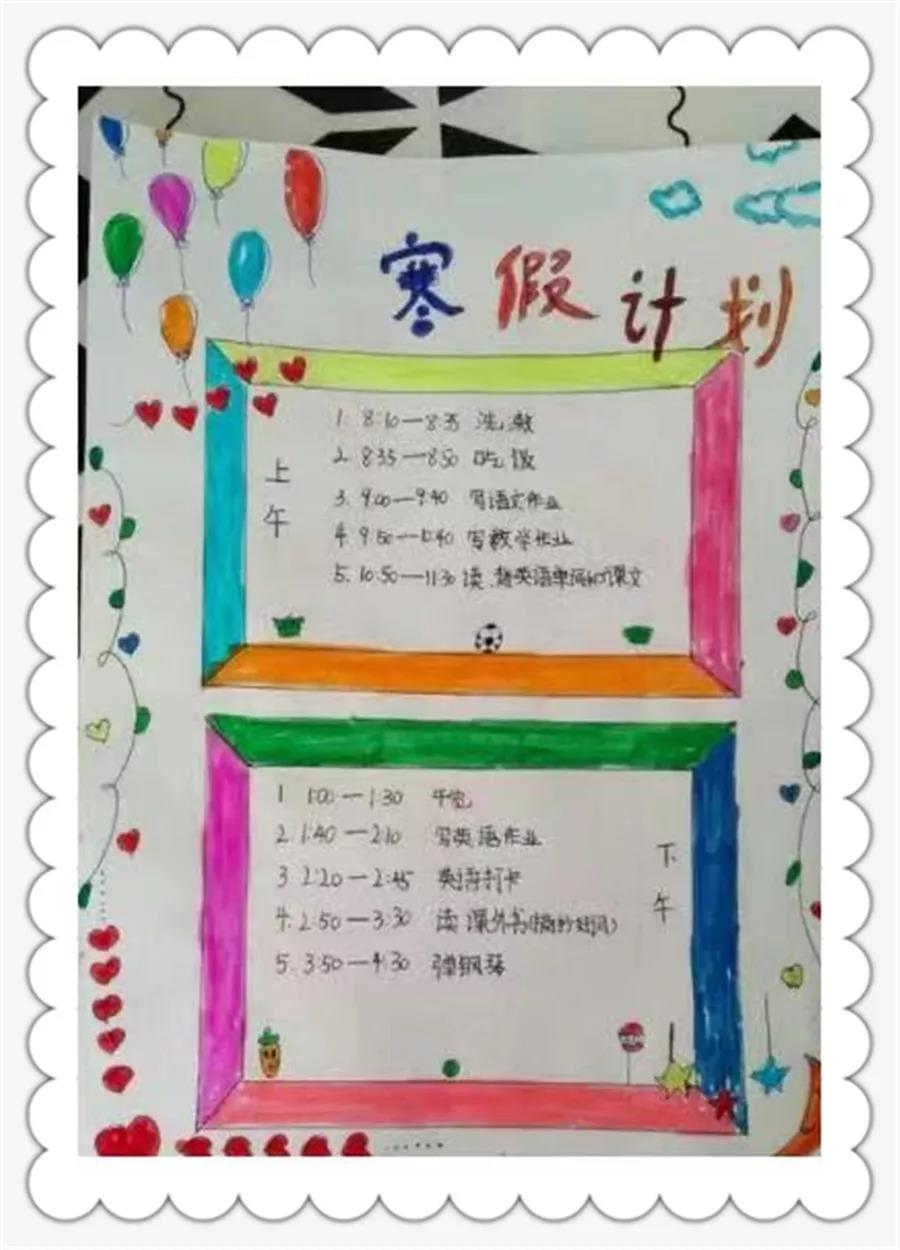 寒假计划
上午
1. 8:10—8:35 洗漱
2. 8:35—8:50 吃饭
3. 9:00—9:40 写语文作业
4. 9:50—10:40 写数学作业
5. 10:50—11:30 读、背英语单词和课文
下午
1 1:00—1:30 午觉
2. 1:40—2:10 写英语作业
3 2:20—2:45 英语打卡
4. 2:50—3:30 读课外书(摘抄好词)
5. 3:50—4:30 弹钢琴